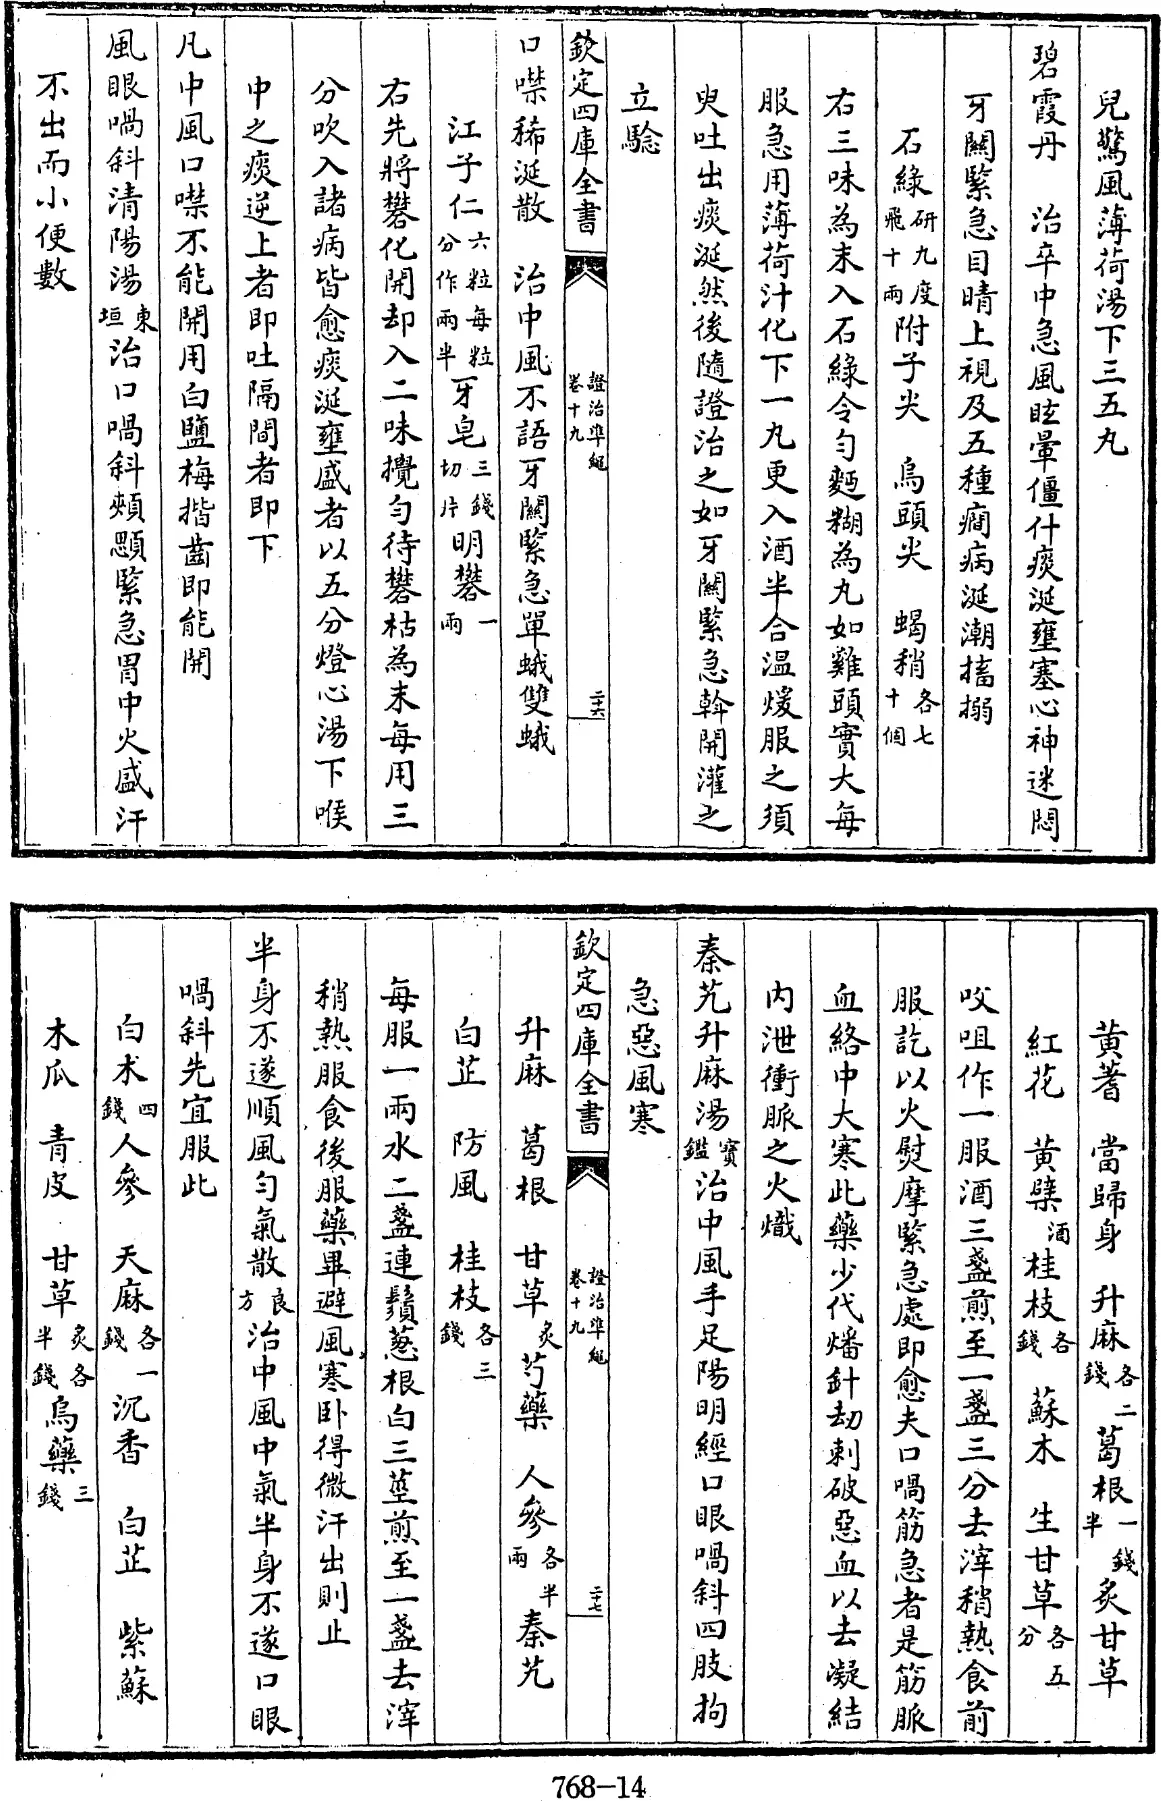 兒驚風薄荷湯下三五丸
碧霞丹　治卒中急風眩暈僵仆痰涎壅塞心神迷悶
牙關緊急目睛上視及五種癎病涎潮搐搦
石綠研九度飛十兩附子尖　烏頭尖　蝎稍各七十個
右三味為末入石綠令勻麪糊為丸如雞頭實大每
服急用薄荷汁化下一丸更入酒半合溫煖服之須
臾吐出痰涎然後隨證治之如牙關緊急斡開灌之
立驗
欽定四庫全書　證治準繩卷十九　二十六
口噤稀涎散　治中風不語牙關緊急單蛾雙蛾
江子仁六粒每粒分作兩半牙皂三錢切片明礬一兩
右先將礬化開却入二味攪勻待礬枯為末每用三
分吹入諸病皆愈痰涎壅盛者以五分燈心湯下喉
中之痰逆上者即吐隔間者即下
凡中風口噤不能開用白鹽梅揩齒即能開
風眼喎斜清陽湯東垣治口喎斜頰顋緊急胃中火盛汗
不出而小便數
黃蓍　當歸身　升麻各二錢葛根一錢半炙甘草
紅花　黃蘗酒桂枝各錢　蘇木　生甘草各五分
㕮咀作一服酒三盞煎至一盞三分去滓稍熱食前
服訖以火熨摩緊急處即愈夫口喎筋急者是筋脈
血絡中大寒此藥少代燔針劫刺破惡血以去凝結
內泄衝脈之火熾
秦艽升麻湯寳鑑治中風手足陽明經口眼喎斜四肢拘
急惡風寒
欽定四庫全書　證治準繩卷十九　二十七
升麻　葛根　甘草炙芍藥　人參各半兩秦艽
白芷　防風　桂枝各三錢
每服一兩水二盞連鬚葱根白三莖煎至一盞去滓
稍熱服食後服藥畢避風寒卧得微汗出則止
半身不遂順風勻氣散良方治中風中氣半身不遂口眼
喎斜先宜服此
白术四錢人參　天麻各一錢沉香　白芷　紫蘇
木瓜　青皮　甘草炙各半錢烏藥三錢
768-14